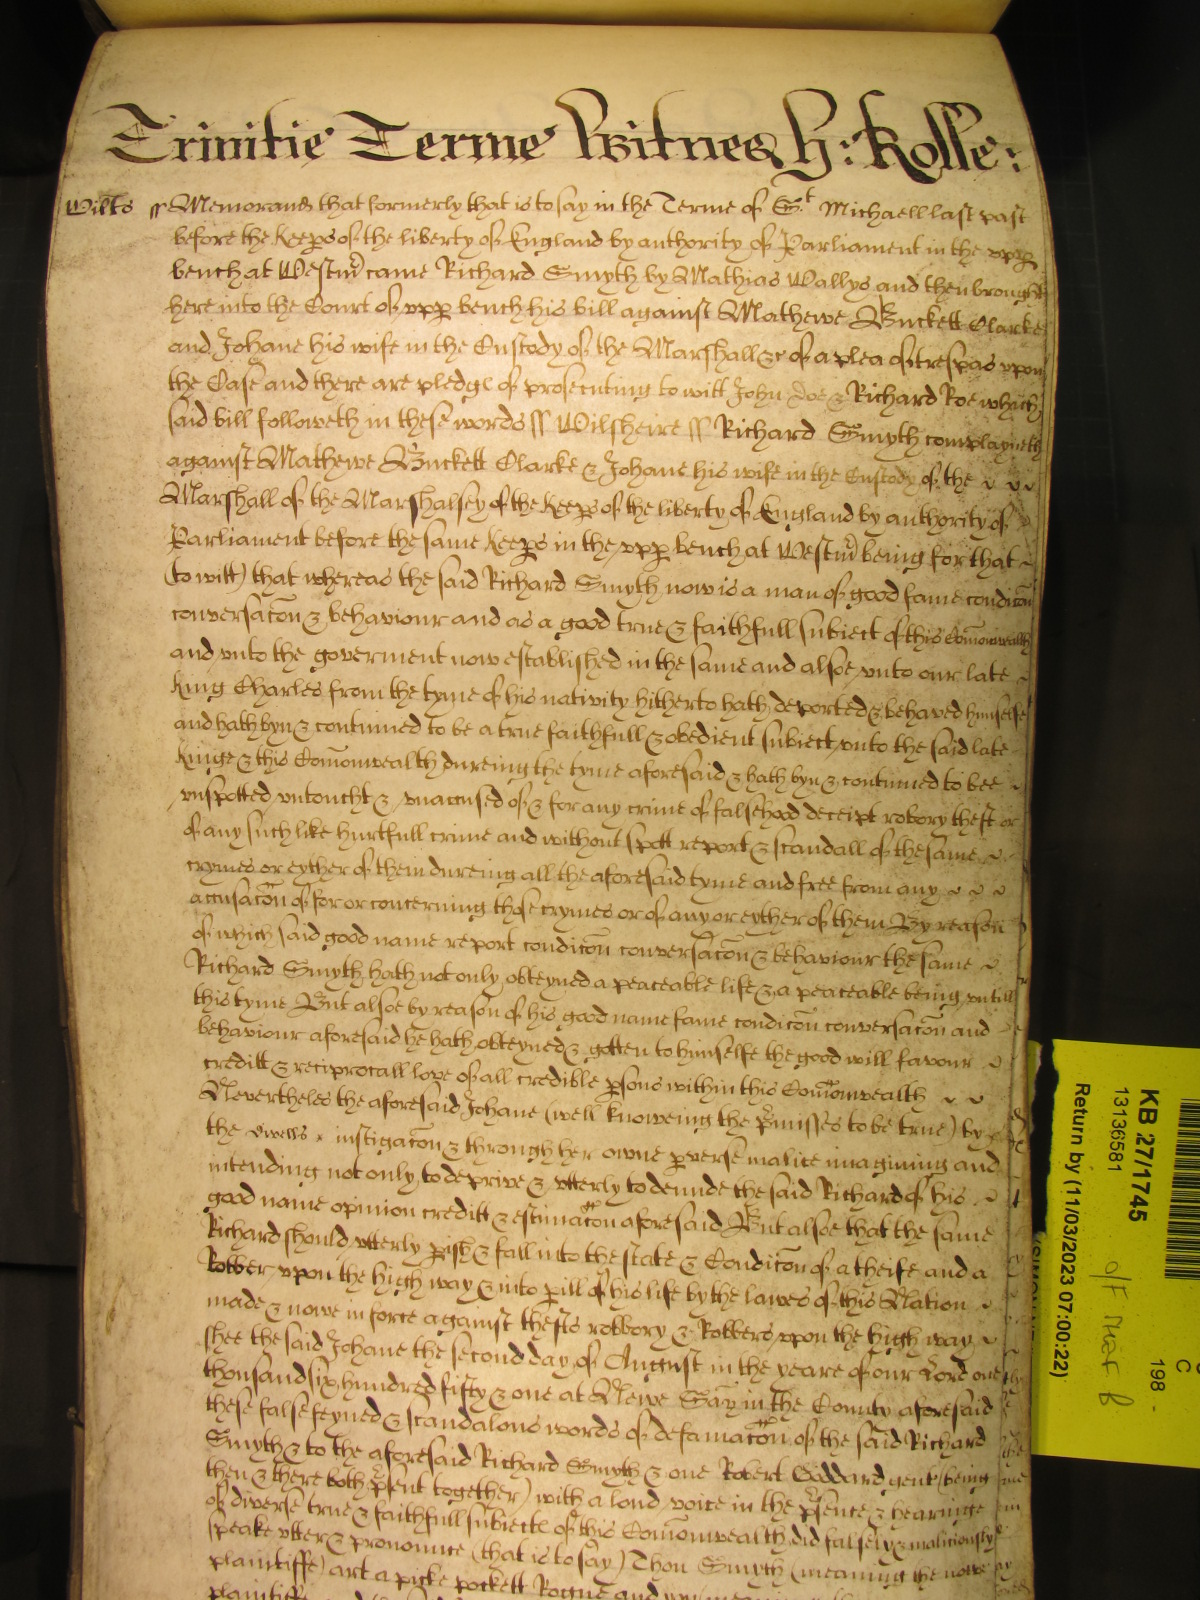 Trinitie Terme Witnes H: Rolle:
Wilts ss Memorand that formerly that is to say in the Terme of St Michaell last past
before the keeps of the liberty of England by authority of Parliament in the upp
bench at Westm came Richard Smyth by Mathias Wallys and then brought
here into the Court of upp bench his bill against Mathewe Buckett Clarke
and Johane his wife in the Custody of the Marshall &c of a plea of trespas upon
the Case and there are pledge of prosecuting to witt John Doe & Richard Roe which
said bill followeth in these words ss Wilsheire ss Richard Smyth complayneth
against Mathewe Buckett Clarke & Johane his wife in the Custody of the
Marshall of the Marshalsey of the keeps of the liberty of England by authority of
Parliament before the same keeps in the upp bench at Westm being for that
(to witt) that whereas the said Richard Smyth now is a man of good fame condicon
conversacon & behaviour and as a good true & faithfull subiect of this Comonwealth
and unto the goverment now established in the same and alsoe unto our late
king Charles from the tyme of his nativity hitherto hath deported & behaved himselfe
and hath byn & continued to be a true faithfull & obedient subiect unto the said late
kinge & this Comonwealth dureing the tyme aforesaid & hath byn & continued to bee
unspotted untoucht & unaccused of & for any crime of falsehood deceipt robory theft or
of any such like hurtfull crime and without spott report & scandall of the same
crymes or eyther of them dureing all the aforesaid tyme and free from any
accusacon of for or concerning those crymes or of any or eyther of them By reason
of which said good name report condicon conversacon & behaviour the same
Richard Smyth hath not only obteyned a peaceable life & a peaceable being untill
this tyme But alsoe by reason of his good name fame condicon conversacon and
behaviour aforesaid he hath obteyned & gotten to himselfe the good will favour
creditt & reciprocall love of all credible psons within this Comonwealth
Nevertheles the aforesaid Johane (well knoweing the pmisses to be true) by
the instigacon & through her owne pverse malice imagining and
intending not only to deprive & utterly to denude the said Richard of his
good name opinion creditt & estimacon aforesaid But alsoe that the same
Richard should utterly pish & fall into the state & Condicon of a theife and a
Robber upon the high way & into pill of his life by the lawes of this Nation
made & nowe in force against thefts robbory & Robbers upon the high way
shee the said Johane the second day of August in the yeare of our Lord one
thousand six hundred fifty & one at Newe Sarum in the County aforesaid
these false feyned & scandalous words of defamacon of the said Richard
Smyth & to the aforesaid Richard Smyth & one Robert Goddard gent (being
then & there both psent together) with a loud voice in the psence & hearinge
of diverse true & faithfull subiects of this Comonwealth did falsely & maliciously
speake utter & pronounce (that is to say) Thou Smyth (meaning the nowe
plaintiffe) art a picke pockett Rogue and
plaintiffe
KB 27/1745
13136581
Return by (11/03/2023 07:00:22)
198
C